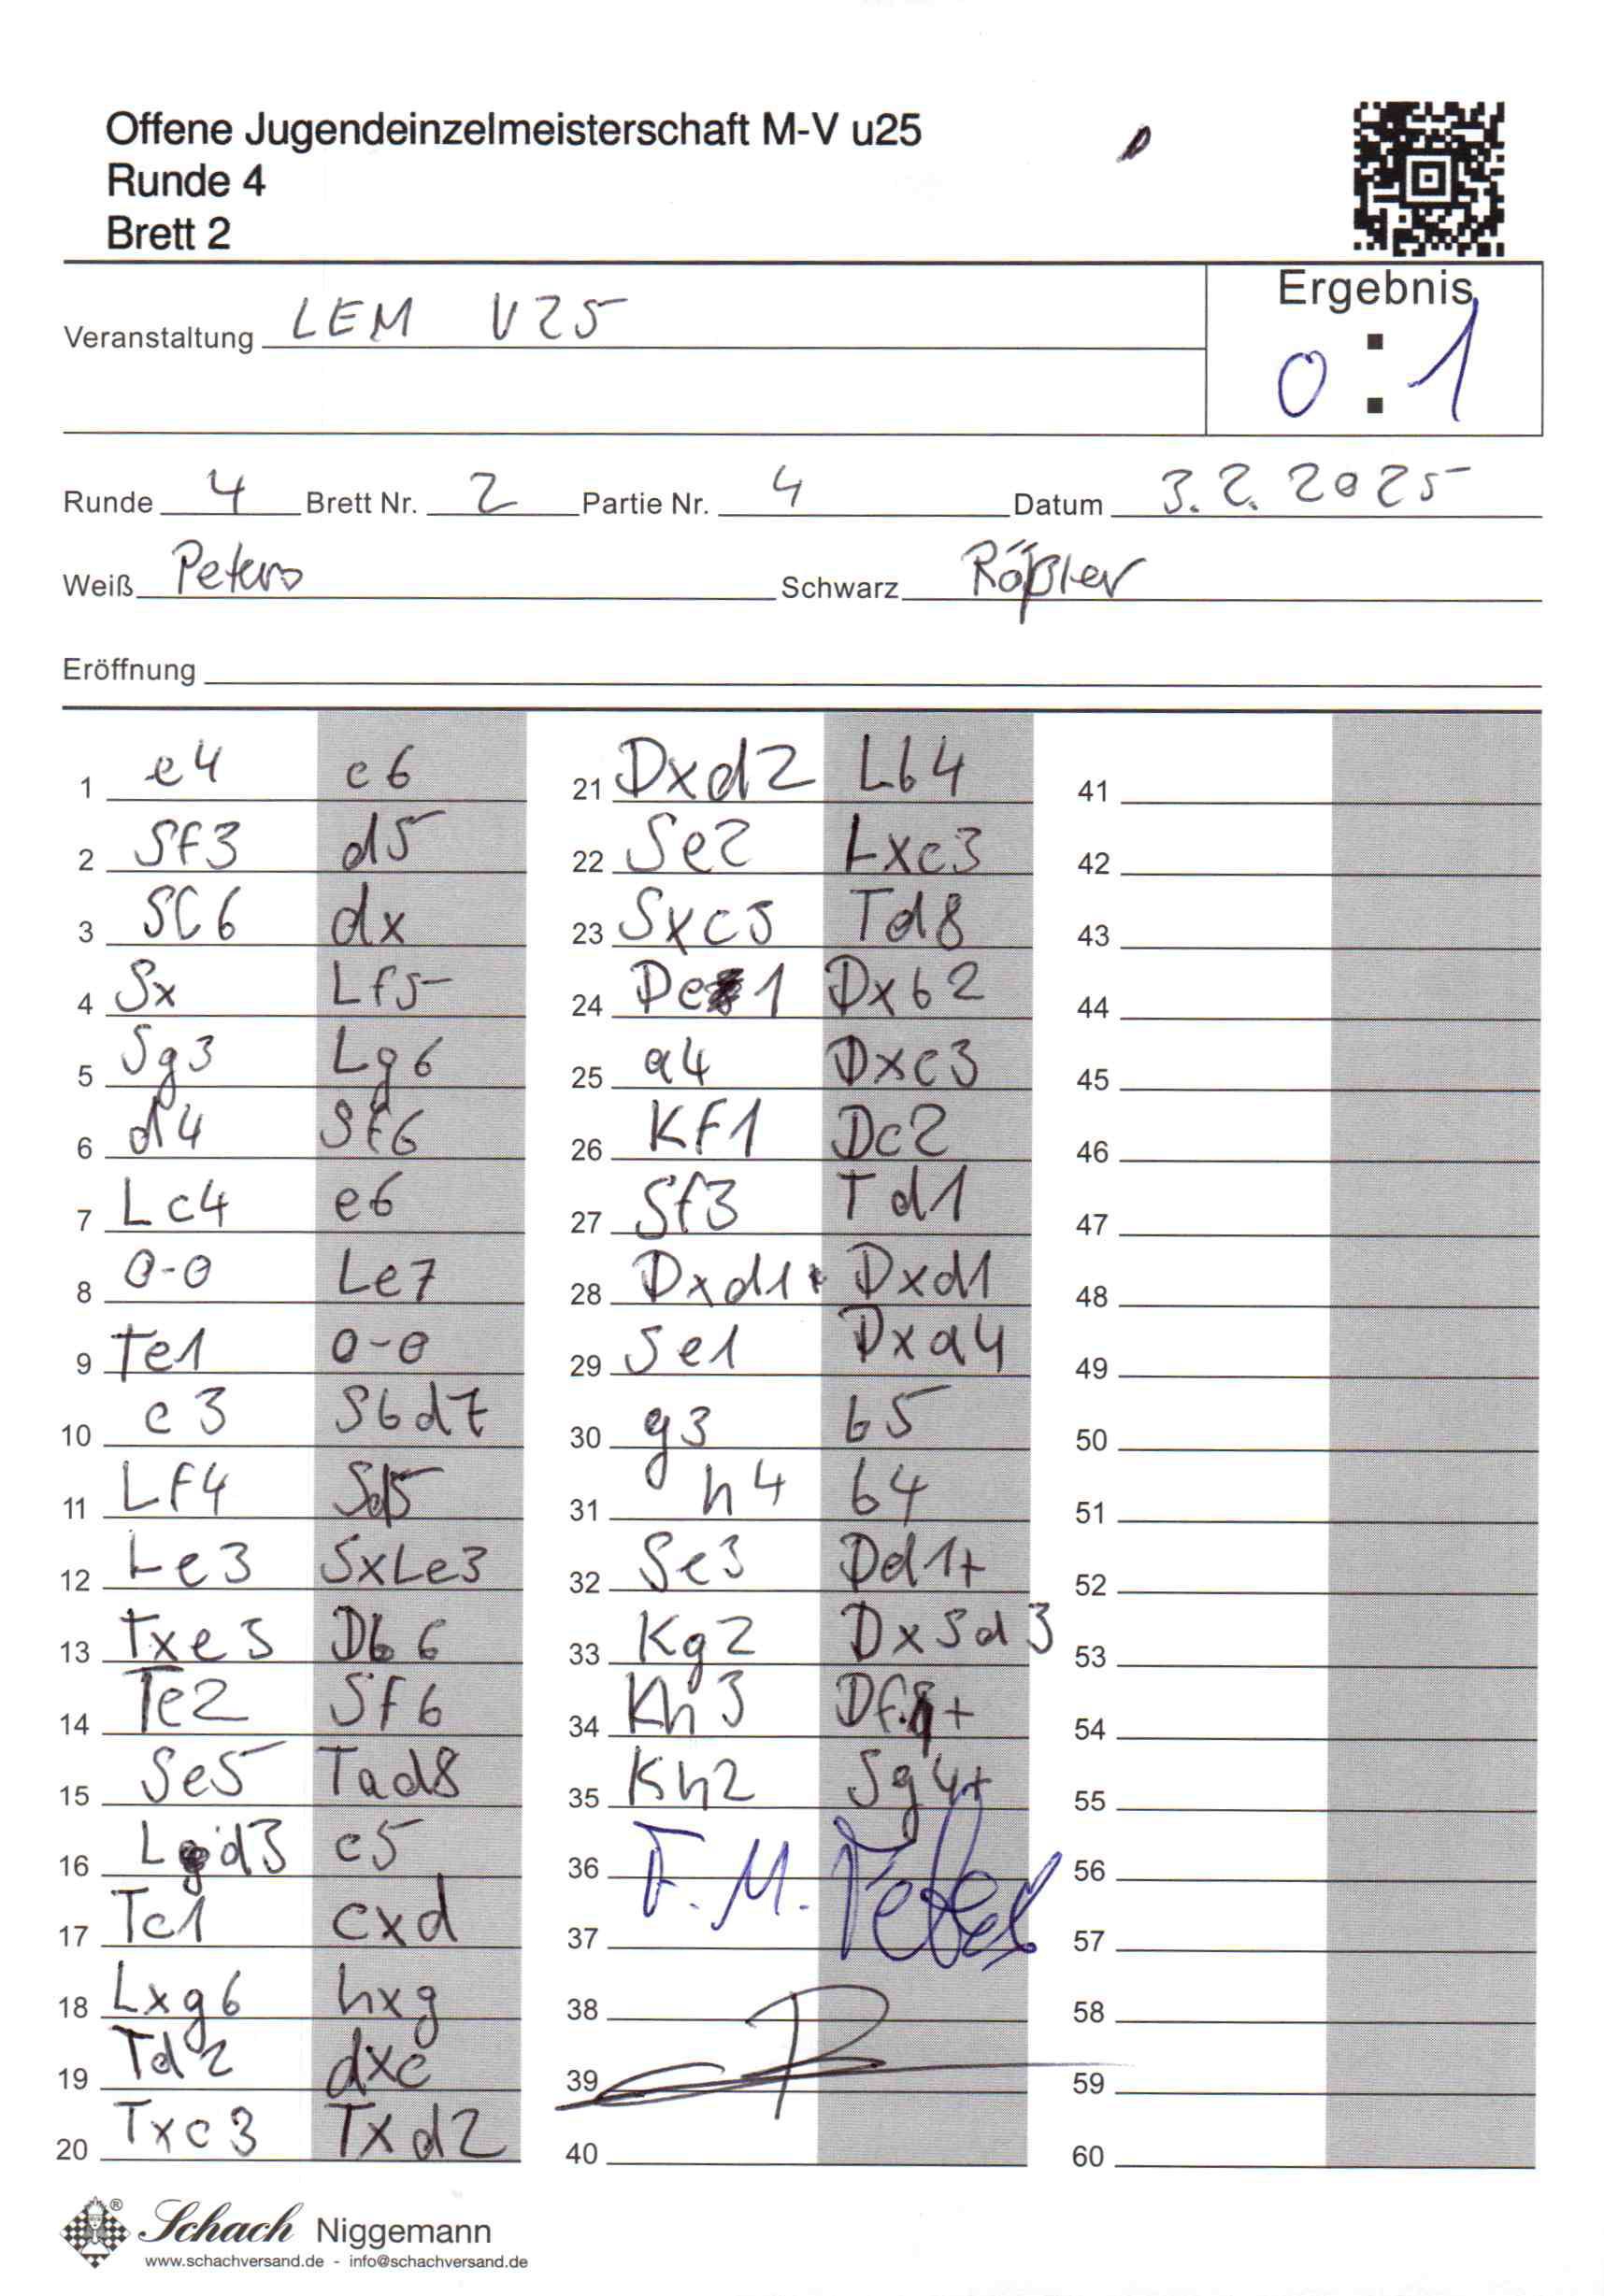 Offene Jugendeinzelmeisterschaft M-V u25
Runde 4
Brett 2
Ergebnis
0 : 1
Veranstaltung LEM U25
Runde 4 Brett Nr. 2 Partie Nr. 4 Datum 3.2.2025
Weiß Peters Schwarz Rößler
Eröffnung
1 e4 c6
2 Sf3 d5
3 SC6 dx
4 Sx Lf5
5 Sg3 Lg6
6 d4 Sf6
7 Lc4 e6
8 0-0 Le7
9 Te1 0-0
10 c3 Sbd7
11 Lf4 Sd5
12 Le3 SxLe3
13 Txe3 Db6
14 Te2 Sf6
15 Se5 Tad8
16 Ld3 c5
17 Tc1 cxd
18 Lxg6 hxg
19 Td2 dxc
20 Txc3 Txd2
21 Dxd2 Lb4
22 Se2 Lxc3
23 Sxc3 Td8
24 De1 Dxb2
25 a4 Dxc3
26 Kf1 Dc2
27 Sf3 Td1
28 Dxd1 Dxd1
29 Se1 Dxa4
30 g3 b5
31 h4 b4
32 Se3 Dd1+
33 Kg2 DxSd3
34 Kh3 Df1+
35 Kh2 Sg4+
36 F. M.
37
38
39
40
41
42
43
44
45
46
47
48
49
50
51
52
53
54
55
56
57
58
59
60
Schach Niggemann
www.schachversand.de - info@schachversand.de